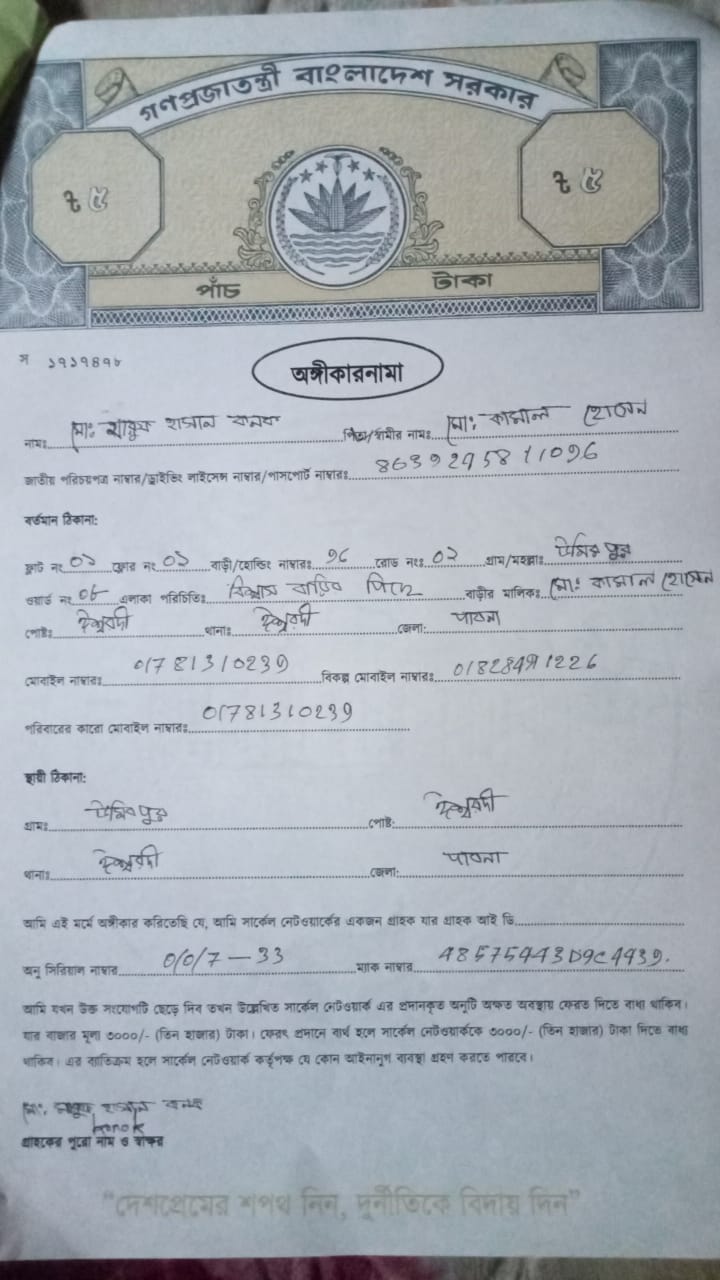 গণপ্রজাতন্ত্রী বাংলাদেশ সরকার
৳ ৫ ৳ ৫
পাঁচ টাকা
স ১৭১৭৪৭৮
অঙ্গীকারনামা
নামঃ মোঃ হাসান পিতা/স্বামীর নামঃ মোঃ কামাল হোসেন
জাতীয় পরিচয়পত্র নাম্বার/ড্রাইভিং লাইসেন্স নাম্বার/পাসপোর্ট নাম্বারঃ 8639295811096
বর্তমান ঠিকানা:
ফ্লাট নং ০১ ফ্লোর নং ০১ বাড়ী/হোল্ডিং নাম্বারঃ ৭৮ রোড নংঃ ০২ গ্রাম/মহল্লাঃ
ওয়ার্ড নং ০৮ এলাকা পরিচিতিঃ বিশ্বাস বাড়ির পিছে বাড়ীর মালিকঃ মোঃ কামাল হোসেন
পোষ্টঃ ঈশ্বরদী থানাঃ ঈশ্বরদী জেলা: পাবনা
মোবাইল নাম্বারঃ 01781310239 বিকল্প মোবাইল নাম্বারঃ
পরিবারের কারো মোবাইল নাম্বারঃ 01781310239
স্থায়ী ঠিকানা:
গ্রামঃ পোষ্ট: ঈশ্বরদী
থানাঃ ঈশ্বরদী জেলা: পাবনা
আমি এই মর্মে অঙ্গীকার করিতেছি যে, আমি সার্কেল নেটওয়ার্কের একজন গ্রাহক যার গ্রাহক আই ডি
অনু সিরিয়াল নাম্বার 0/0/7 – 33 ম্যাক নাম্বার 48575443D9C4439.
আমি যখন উক্ত সংযোগটি ছেড়ে দিব তখন উল্লেখিত সার্কেল নেটওয়ার্ক এর প্রদানকৃত অনুটি অক্ষত অবস্থায় ফেরত দিতে বাধ্য থাকিব।
যার বাজার মূল্য ৩০০০/- (তিন হাজার) টাকা। ফেরৎ প্রদানে ব্যর্থ হলে সার্কেল নেটওয়ার্ককে ৩০০০/- (তিন হাজার) টাকা দিতে বাধ্য
থাকিব। এর ব্যতিক্রম হলে সার্কেল নেটওয়ার্ক কর্তৃপক্ষ যে কোন আইনানুগ ব্যবস্থা গ্রহণ করতে পারবে।
মোঃ হাসান
konok
গ্রাহকের পুরো নাম ও স্বাক্ষর
"দেশপ্রেমের শপথ নিন, দুর্নীতিকে বিদায় দিন"